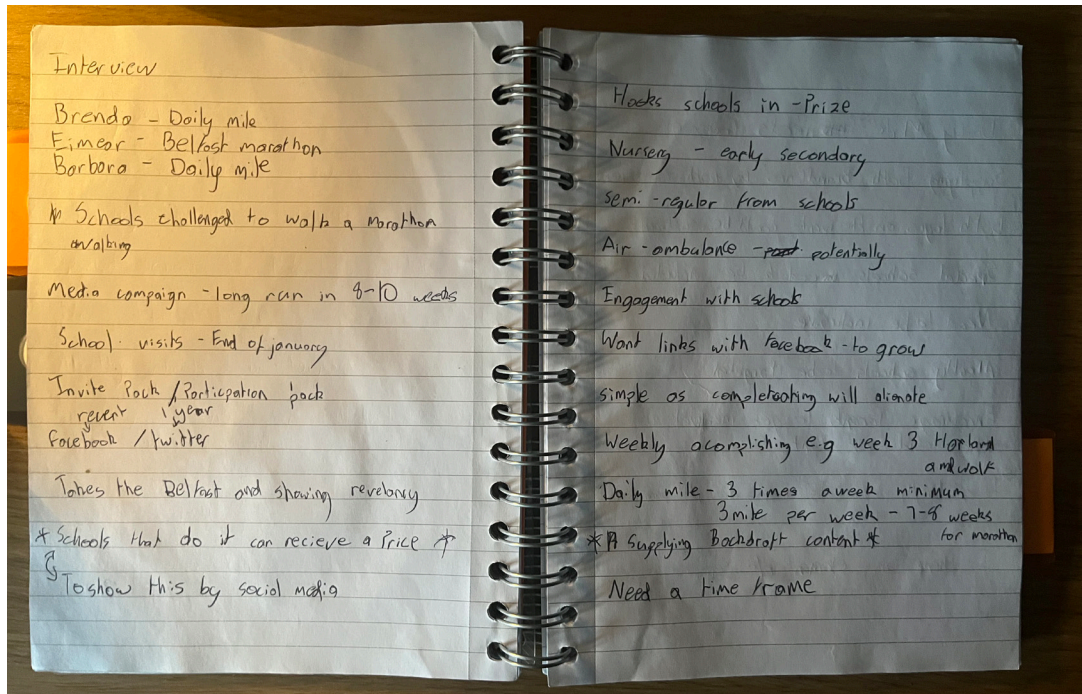 Interview
Brenda - Daily mile
Eimear - Belfast marathon
Barbara - Daily mile
Schools challenged to walk a marathon
walking
Media campaign - long run in 8-10 weeks
School visits - End of january
Invite Pack / Particpation pack
revert 1 year
facebook / twitter
Takes the Belfast and showing revelancy
* Schools that do it can recieve a Price *
To show this by social media
Hooks schools in - Prize
Nursery - early secondary
semi-regular from schools
Air-ambulance - potentially
Engagement with schools
Want links with facebook - to grow
simple as completeating will alienate
Weekly acomplishing e.g week 3
and wolf
Daily mile - 3 times a week minimum
3 mile per week - 7-8 weeks
for marathon
* Supplying Backdraft content *
Need a time frame